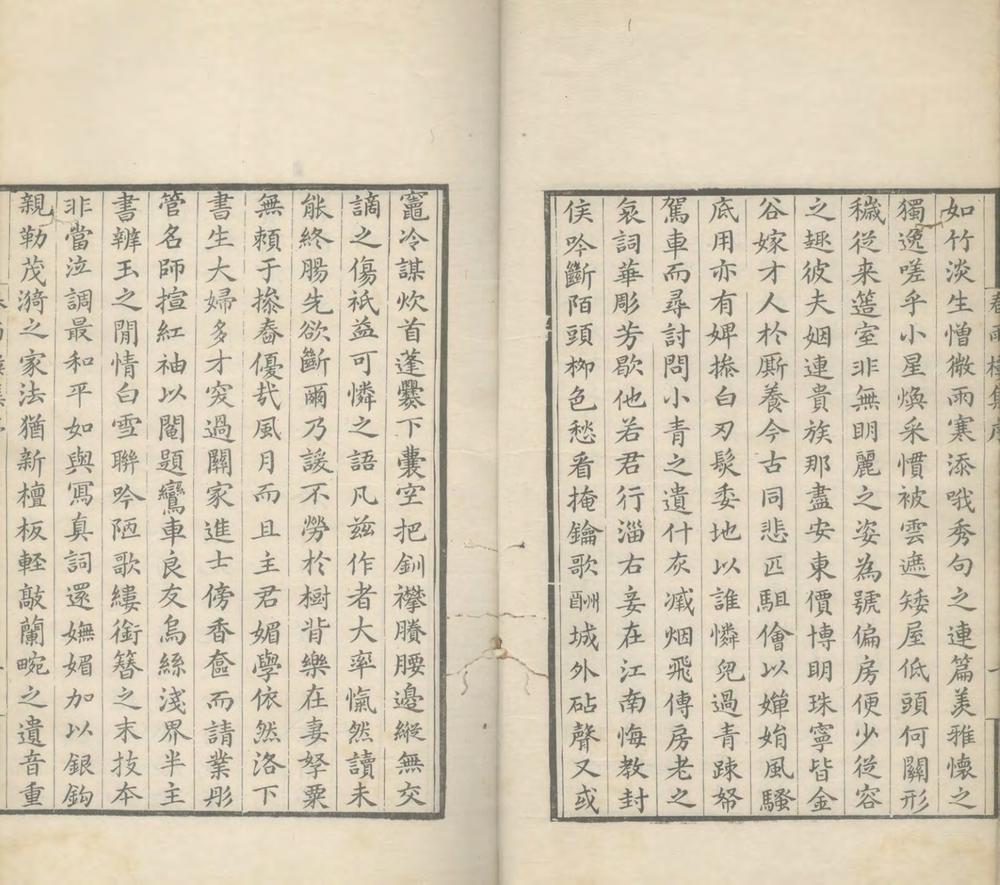 如竹淡生憎微雨寒添哦秀句之連篇羡雅懷之
獨逸嗟乎小星煥采慣被雲遮矮屋低頭何關形
穢從来簉室非無明麗之姿為號偏房便少從容
之趣彼夫姻連貴族那盡安東價博明珠寧皆金
谷嫁才人於厮養今古同悲匹駔儈以嬋娟風騷
底用亦有婢搽白刃髮委地以誰憐兒過青踈帑
駕車而尋討問小青之遺什灰滅烟飛傳房老之
哀詞華彫芳歇他若君行淄右妾在江南悔教封
侯吟斷陌頭栁色愁看掩鑰歌酬城外砧聲又或
竈冷謀炊首蓬爨下囊空把釧襻賸腰邊縱無交
謫之傷祇益可憐之語凡茲作者大率愾然讀未
能終腸先欲斷爾乃諼不勞於樹背樂在妻孥粟
無頼于搽舂優㢤風月而且主君媚學依然洛下
書生大婦多才突過關家進士傍香奩而請業彤
管名師揎紅袖以鬮題鸞車良友烏絲淺界半主
書辨玉之閒情白雪聯吟陋歌縷銜簪之末技夲
非當泣調最和平如與寫真詞還嫵媚加以銀鈎
親勒茂漪之家法猶新檀板輕敲蘭畹之遺音重